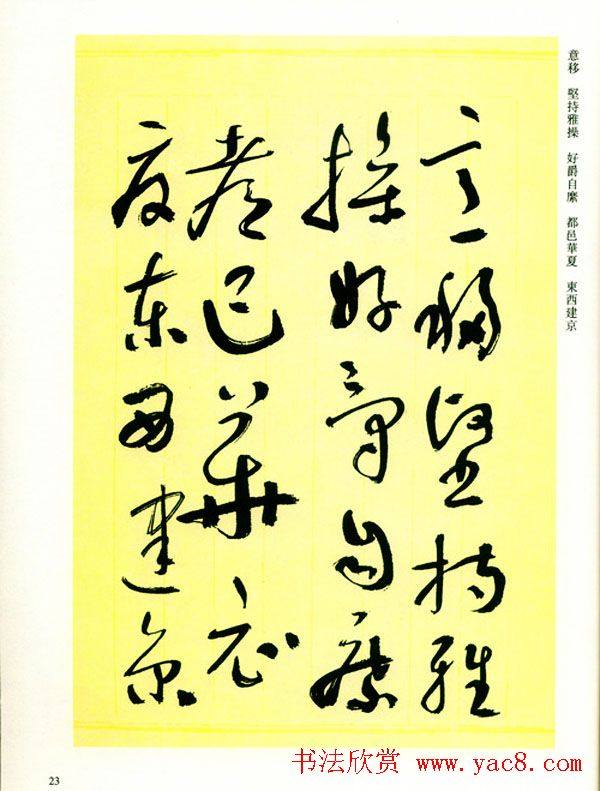 意移 堅持雅操 好爵自縻 都邑華夏 東西建京
意移堅持雅
操好爵自縻
都邑華
夏東西建京
23
书法欣赏 www.yac8.com